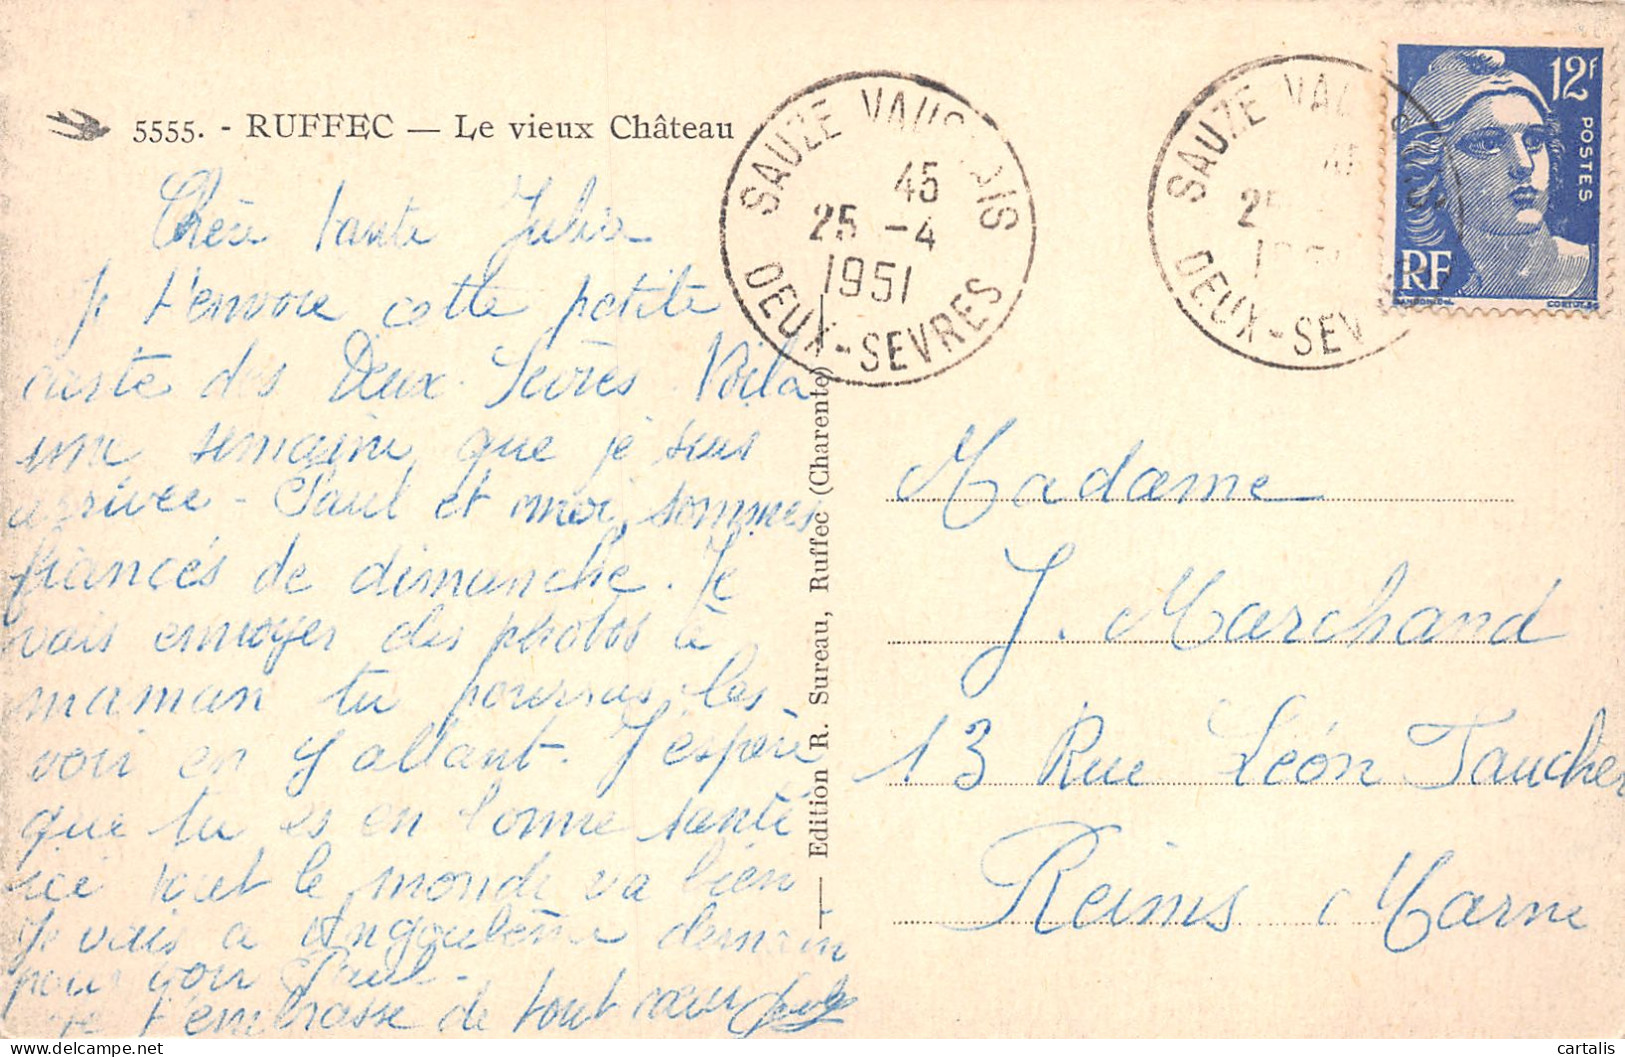 5555. - RUFFEC — Le vieux Château
Chère tante Julia
Je t'envoie cette petite
carte des Deux-Sèvres. Voila
une semaine que je suis
arrivée - Paul et moi, sommes
fiancés de dimanche. Je
vais envoyer des photos à
maman tu pourras les
voir en y allant. J'espère
que tu es en bonne santé
ici tout le monde va bien
Je vais a Angoulême demain
pour voir Paul -
Je t'embrasse de tout cœur
Edition R. Sureau, Ruffec (Charente)
SAUZE VAUSSAIS
45
25 -4
1951
DEUX-SEVRES
SAUZE VAU
45
25
1951
DEUX-SEV
12F
POSTES
RF
GANDON DEL.
CORTOT SC.
Madame
J. Marchand
13 Rue Léon Faucher
Reims Marne
cartalis
delcampe.net